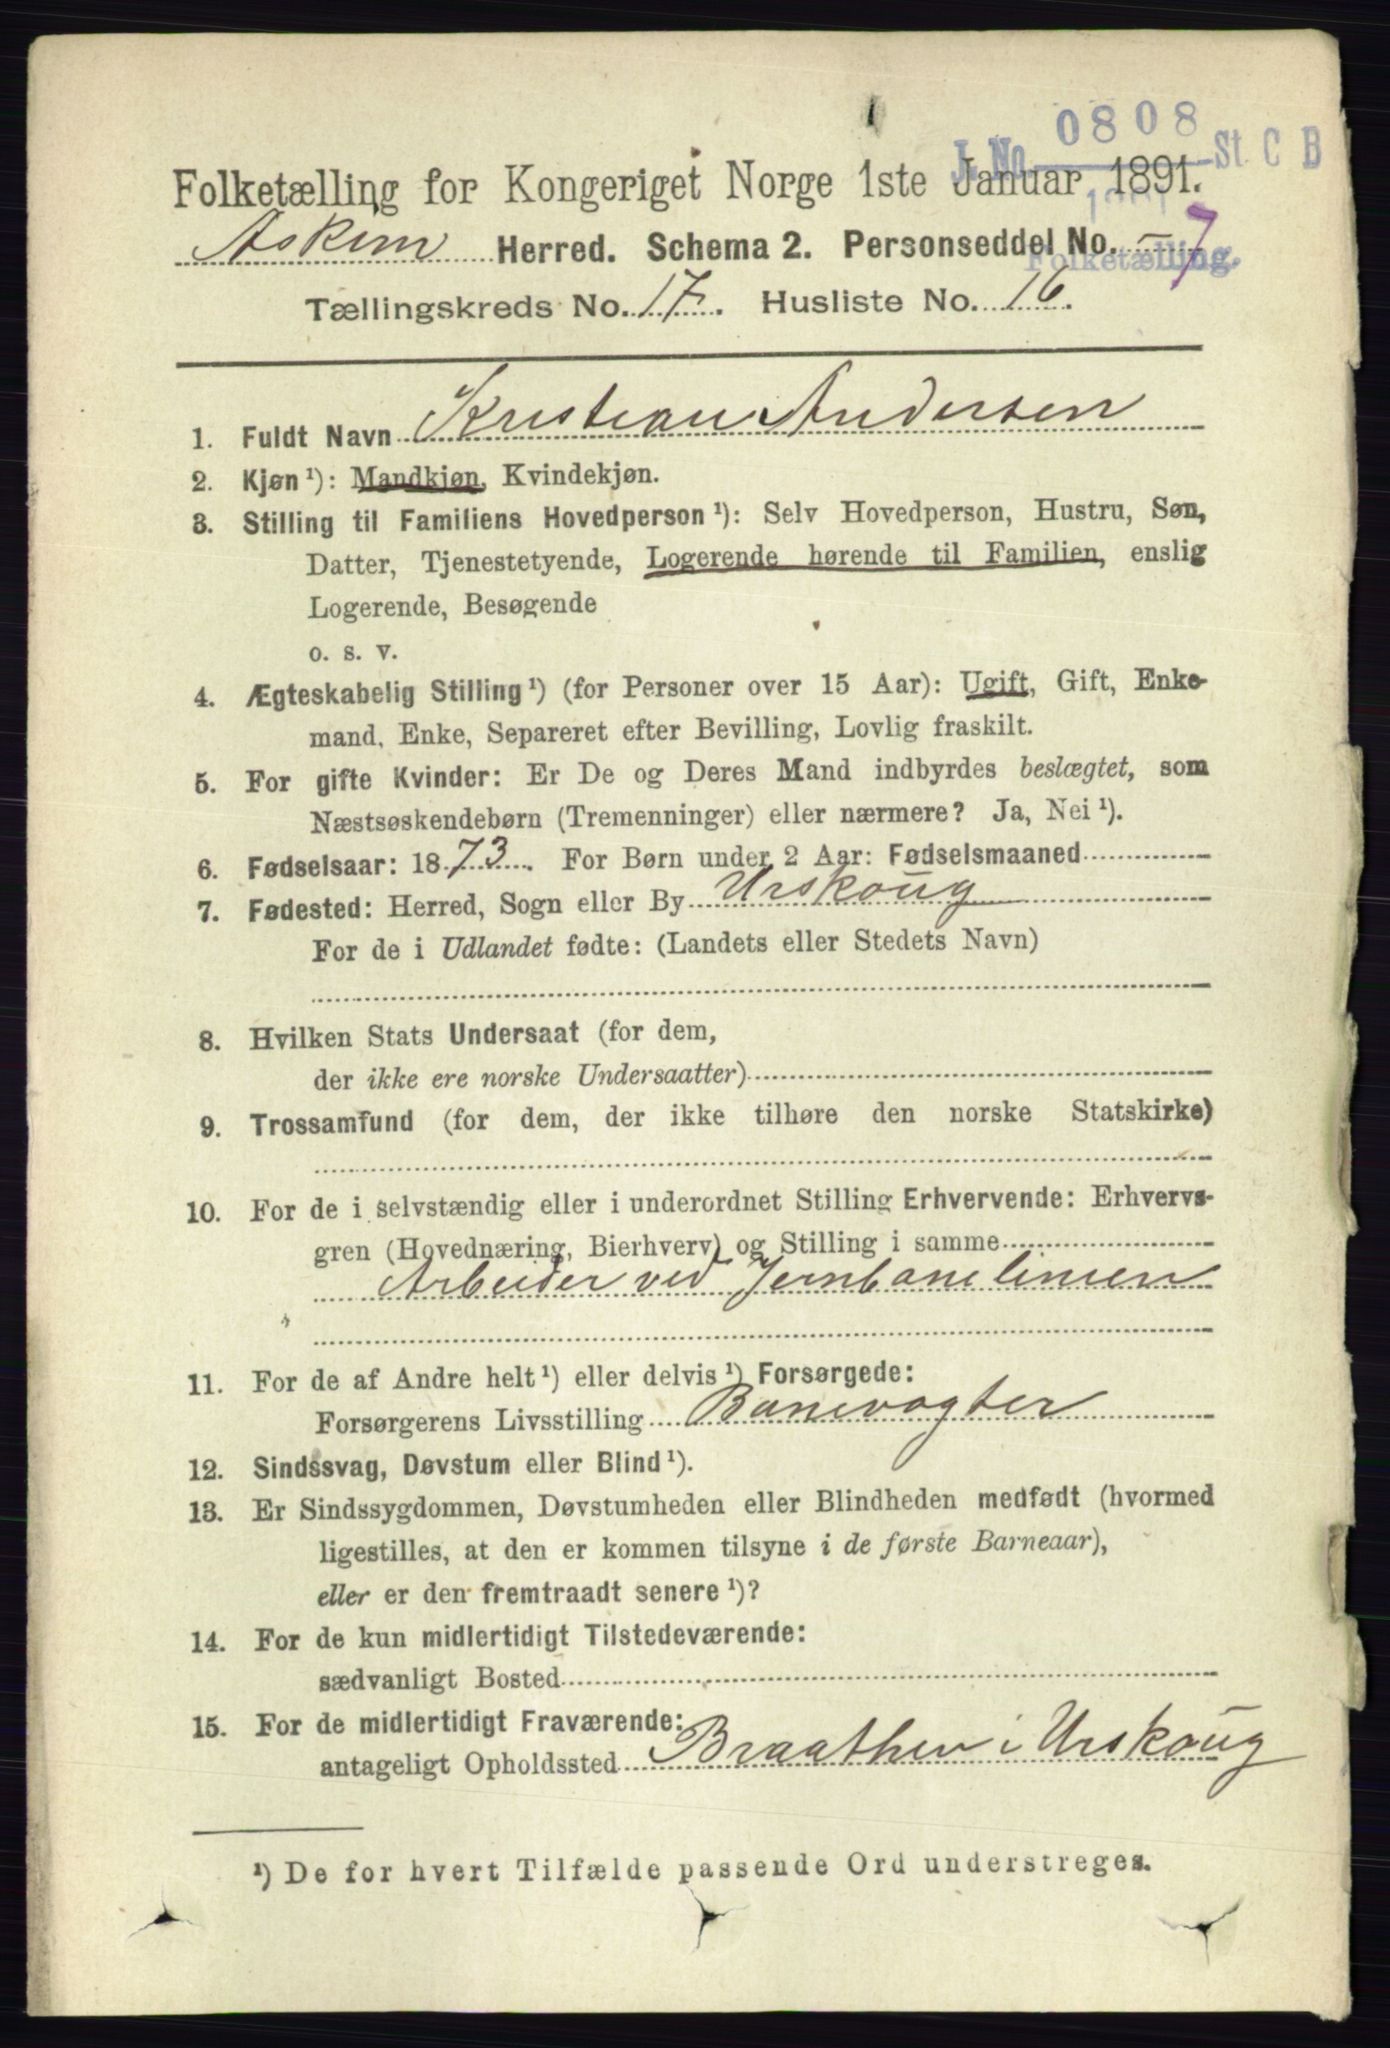 0808
J. No. St. C B
Folketælling for Kongeriget Norge 1ste Januar 1891.
Askim Herred. Schema 2. Personseddel No. 7
Folketælling.
Tællingskreds No. 17. Husliste No. 16.
1. Fuldt Navn Kristian Andersen
2. Kjøn ¹): Mandkjøn, Kvindekjøn.
3. Stilling til Familiens Hovedperson ¹): Selv Hovedperson, Hustru, Søn,
Datter, Tjenestetyende, Logerende hørende til Familien, enslig
Logerende, Besøgende
o. s. v.
4. Ægteskabelig Stilling ¹) (for Personer over 15 Aar): Ugift, Gift, Enke-
mand, Enke, Separeret efter Bevilling, Lovlig fraskilt.
5. For gifte Kvinder: Er De og Deres Mand indbyrdes beslægtet, som
Næstsøskendebørn (Tremenninger) eller nærmere? Ja, Nei ¹).
6. Fødselsaar: 1873. For Børn under 2 Aar: Fødselsmaaned
7. Fødested: Herred, Sogn eller By Urskoug
For de i Udlandet fødte: (Landets eller Stedets Navn)
8. Hvilken Stats Undersaat (for dem,
der ikke ere norske Undersaatter)
9. Trossamfund (for dem, der ikke tilhøre den norske Statskirke)
10. For de i selvstændig eller i underordnet Stilling Erhvervende: Erhvervs-
gren (Hovednæring, Bierhverv) og Stilling i samme
Arbeider ved Jernbanelinien
11. For de af Andre helt ¹) eller delvis ¹) Forsørgede:
Forsørgerens Livsstilling Banevogter
12. Sindssvag, Døvstum eller Blind ¹).
13. Er Sindssygdommen, Døvstumheden eller Blindheden medfødt (hvormed
ligestilles, at den er kommen tilsyne i de første Barneaar),
eller er den fremtraadt senere ¹)?
14. For de kun midlertidigt Tilstedeværende:
sædvanligt Bosted
15. For de midlertidigt Fraværende:
antageligt Opholdssted Braathen i Urskoug
¹) De for hvert Tilfælde passende Ord understreges.